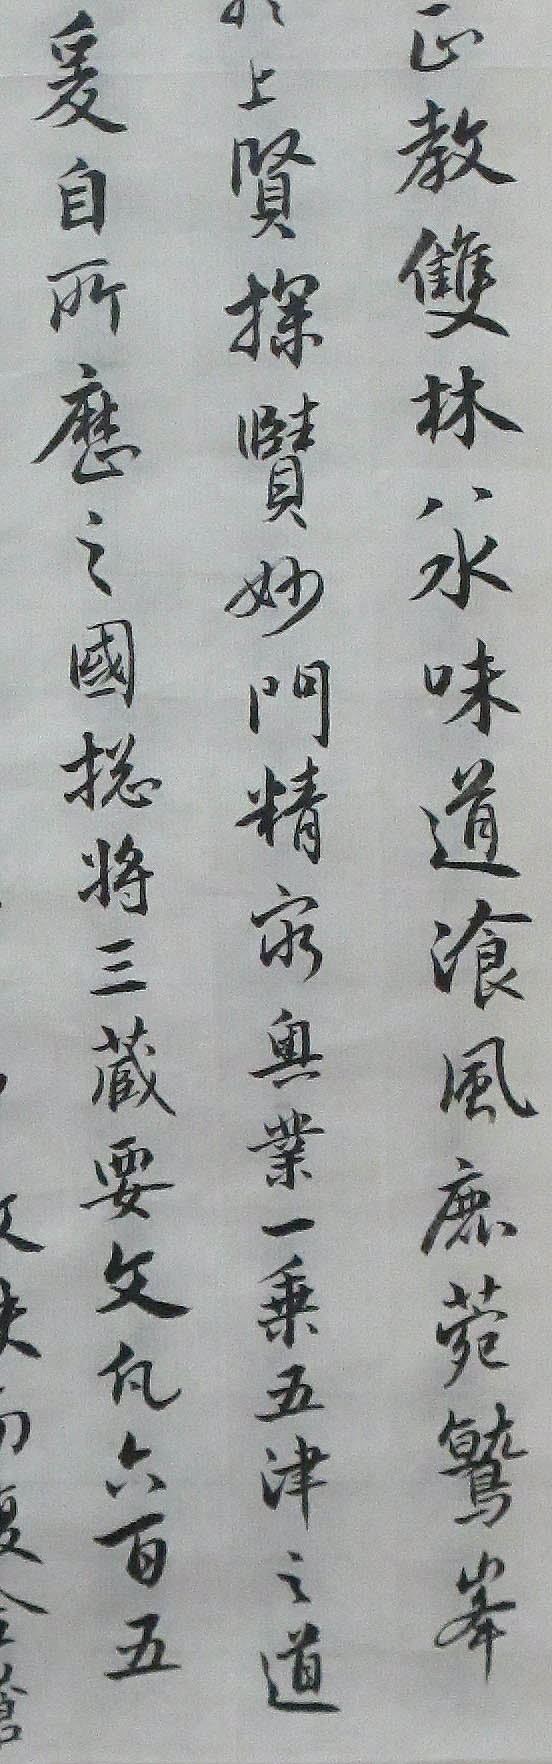 正教雙林八水味道飡風鹿菀鷲峯
上賢探賾妙門精窮奧業一乗五津之道
爰自所歷之國揔將三藏要文凡六百五